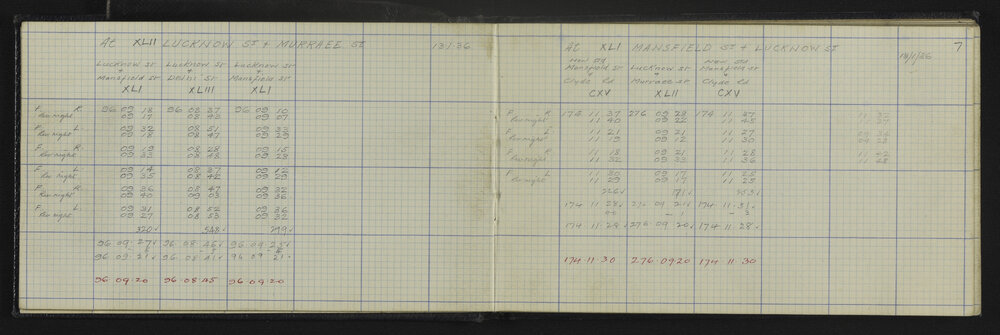 At XLII LUCKNOW ST + MURRAEE ST 13.1.36
Lucknow St Lucknow St Lucknow St
+ + +
Mansfield St Delhi St Mansfield St
XLI XLIII XLI
F R. 96 09 18 96 08 37 96 09 10
Rev night 09 17 08 43 09 07
F L. 09 32 08 51 09 33
Rev night 09 18 08 47 09 29
F R. 09 19 08 28 09 15
Rev night 09 33 08 48 09 28
F L. 09 14 08 37 09 12
Rev night 09 35 08 42 09 29
F R. 09 36 08 47 09 32
Rev night 09 40 09 03 09 36
F L. 09 31 08 52 09 36
Rev night 09 27 08 53 09 32
320 548 299
96 09 27 96 08 46 96 09 25
96 09 21 96 08 41 96 09 21
96 09 20 96 08 45 96 09 20
At XLI MANSFIELD ST + LUCKNOW ST 7
New Rd New Rd
Mansfield St Lucknow St Mansfield St
+ + +
Clyde Rd Murraee St Clyde Rd
CXV XLII CXV
F R 174 11 37 276 09 29 174 11 47
Rev night 11 40 09 22 11 45
F L 11 21 09 21 11 27
Rev night 11 19 09 12 11 30
F R 11 18 09 21 11 28
Rev night 11 32 09 33 11 36
F L 11 30 09 17 11 28
Rev night 11 29 09 17 11 25
226 171
174 11 28 276 09 21 174 11 31
- 1 - 3
174 11 28 276 09 20 174 11 28
174 11 30 276 09 20 174 11 30